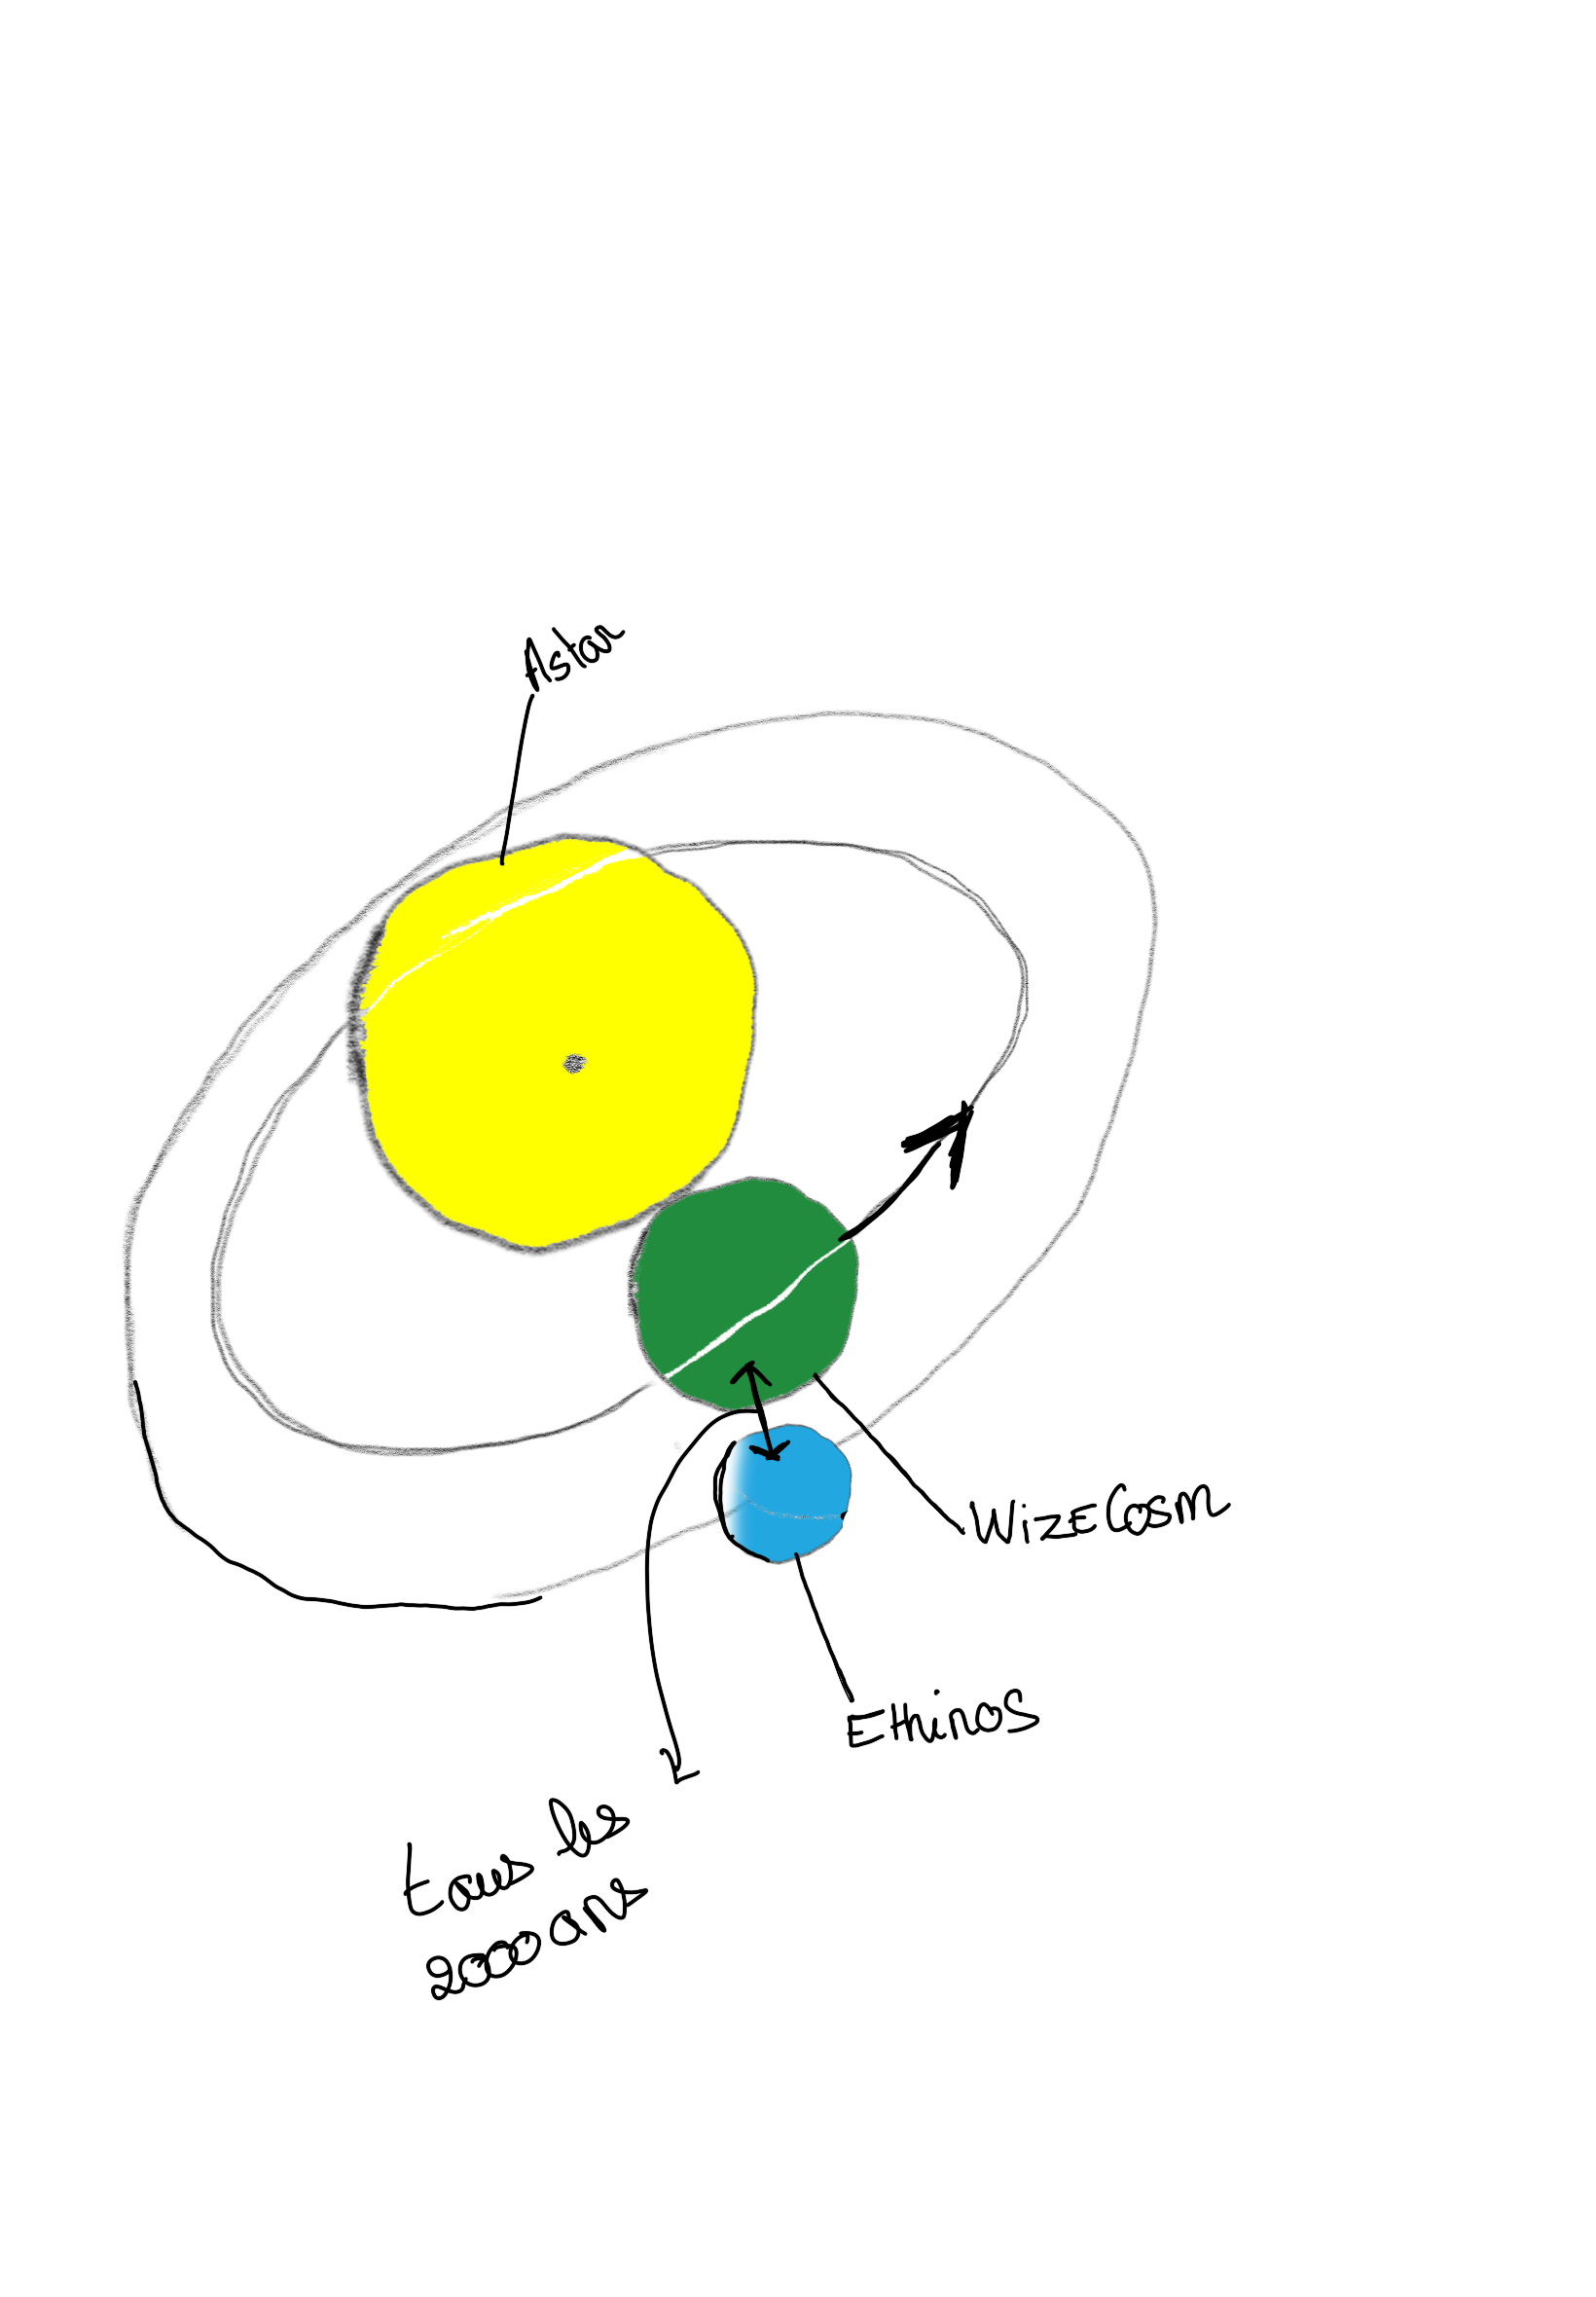 Astar
WizeCosm
Ethinos
tous les
2000 ans